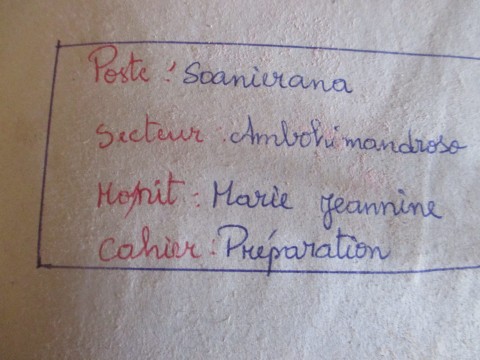 Poste : Soanierana
Secteur : Ambohimandroso
Monit : Marie Jeannine
Cahier : Préparation